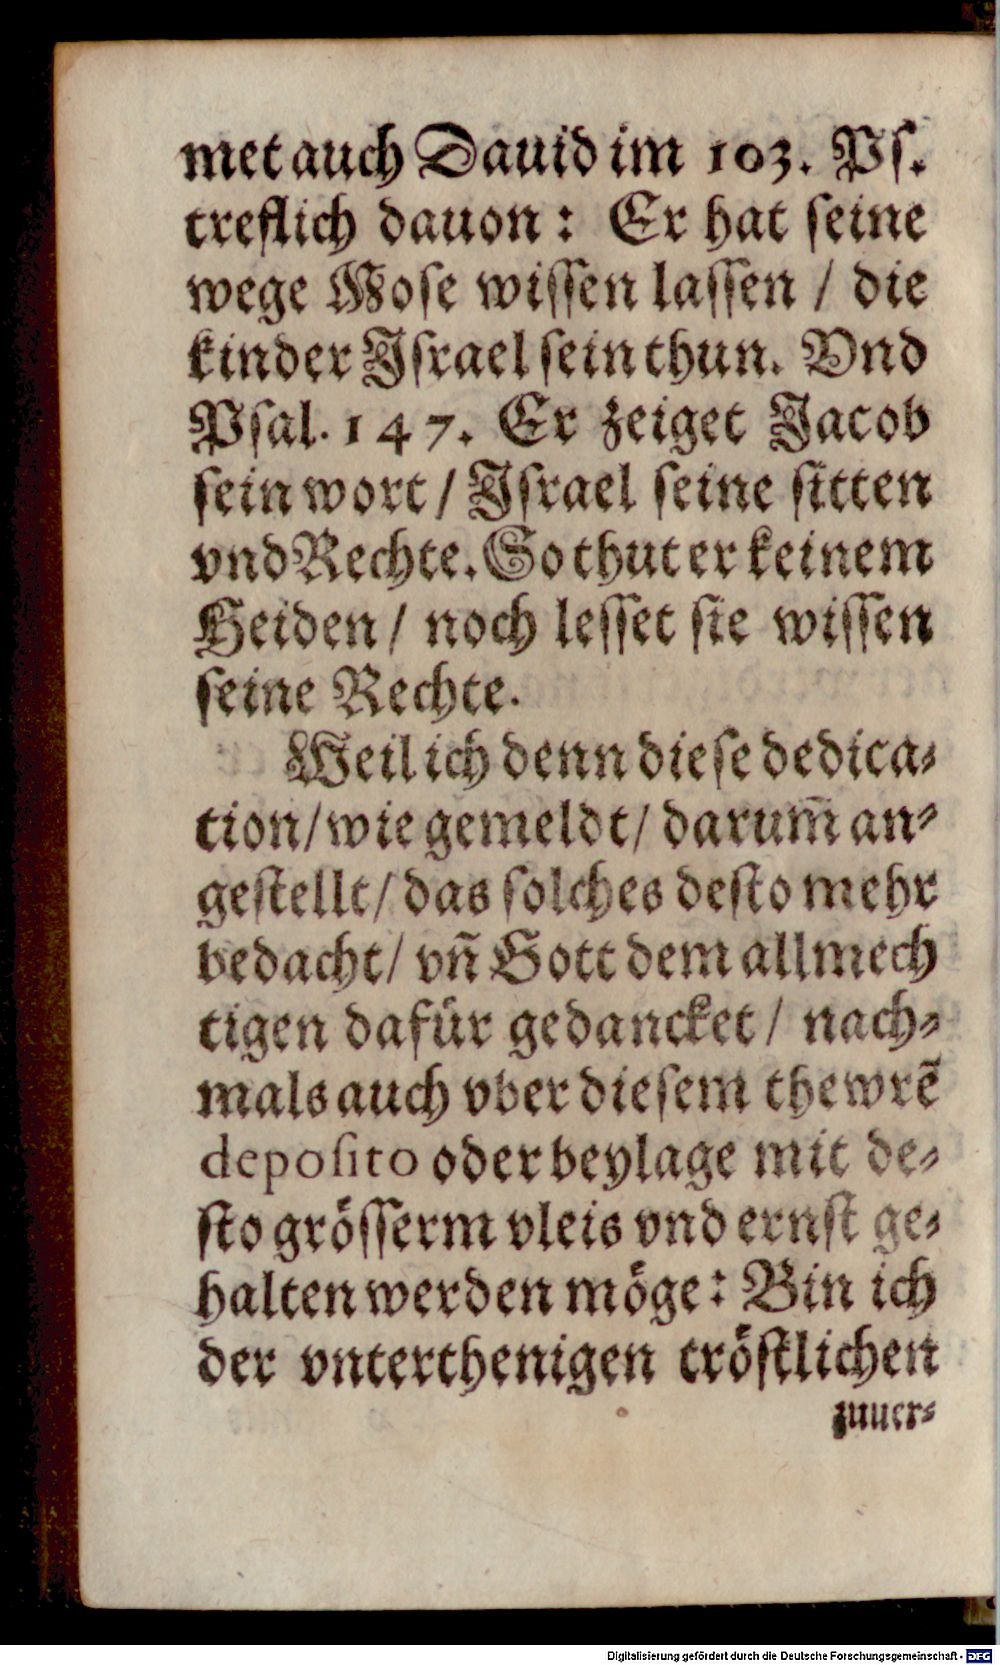 met auch Dauid im 103. Ps.
treflich dauon: Er hat seine
wege Mose wissen lassen / die
kinder Israel sein thun. Vnd
Psal. 147. Er zeiget Jacob
sein wort / Israel seine sitten
vnd Rechte. So thut er keinem
Heiden / noch lesset sie wissen
seine Rechte.
Weil ich denn diese dedica-
tion / wie gemeldt / darum̃ an-
gestellt / das solches desto mehr
bedacht / vñ Gott dem allmech
tigen dafür gedancket / nach-
mals auch vber diesem thewrẽ
deposito oder beylage mit de-
sto grösserm vleis vnd ernst ge-
halten werden möge: Bin ich
der vnterthenigen tröstlichen
zuuer-
Digitalisierung gefördert durch die Deutsche Forschungsgemeinschaft - DFG